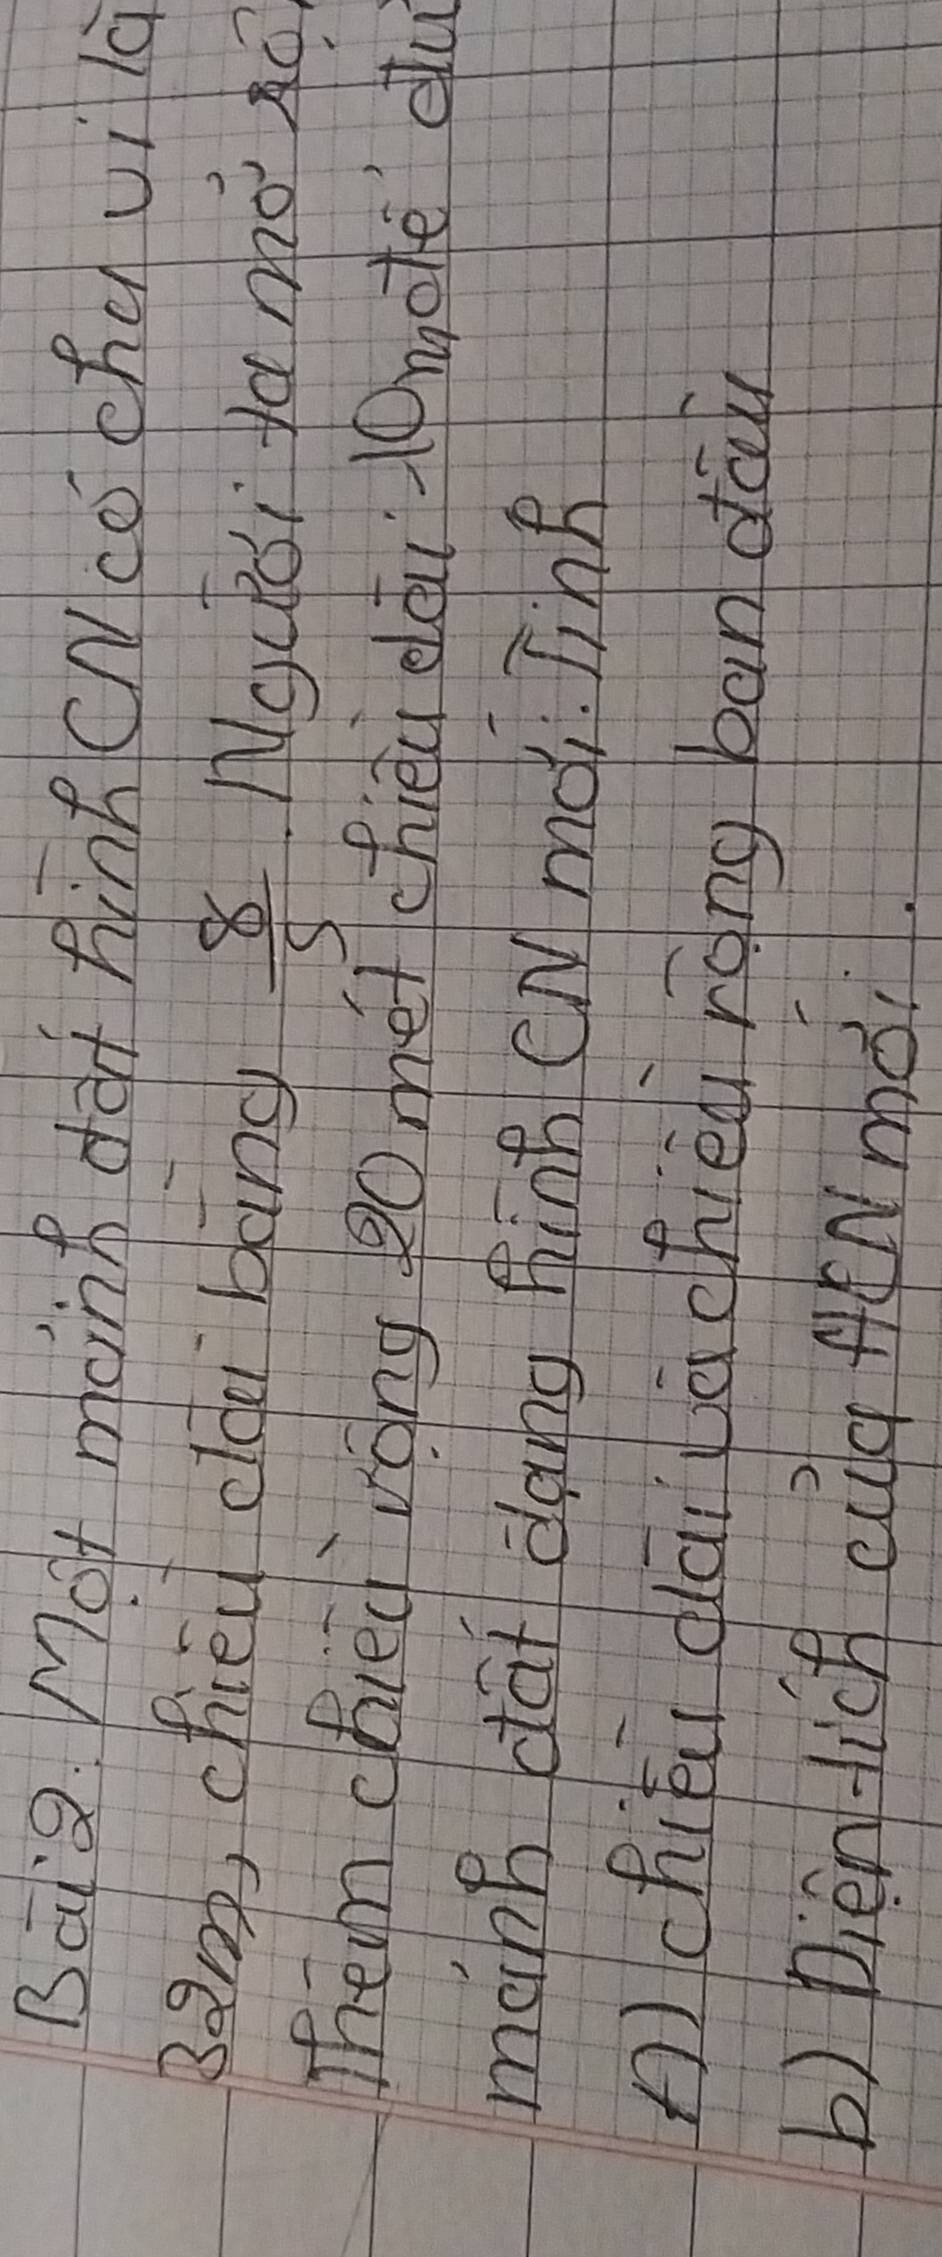 Bài 2. Một mảnh đất hình CN có chu vi là
32m, chiều dài bằng 8/5. Người ta mở rộng
Thêm chiều rộng 20 mét chiều dài 10m để đư
mảnh đất dạng hình CN mới. Tính
A) chiều dài và chiều rộng ban đầu
b) Diện tích của HCN mới.